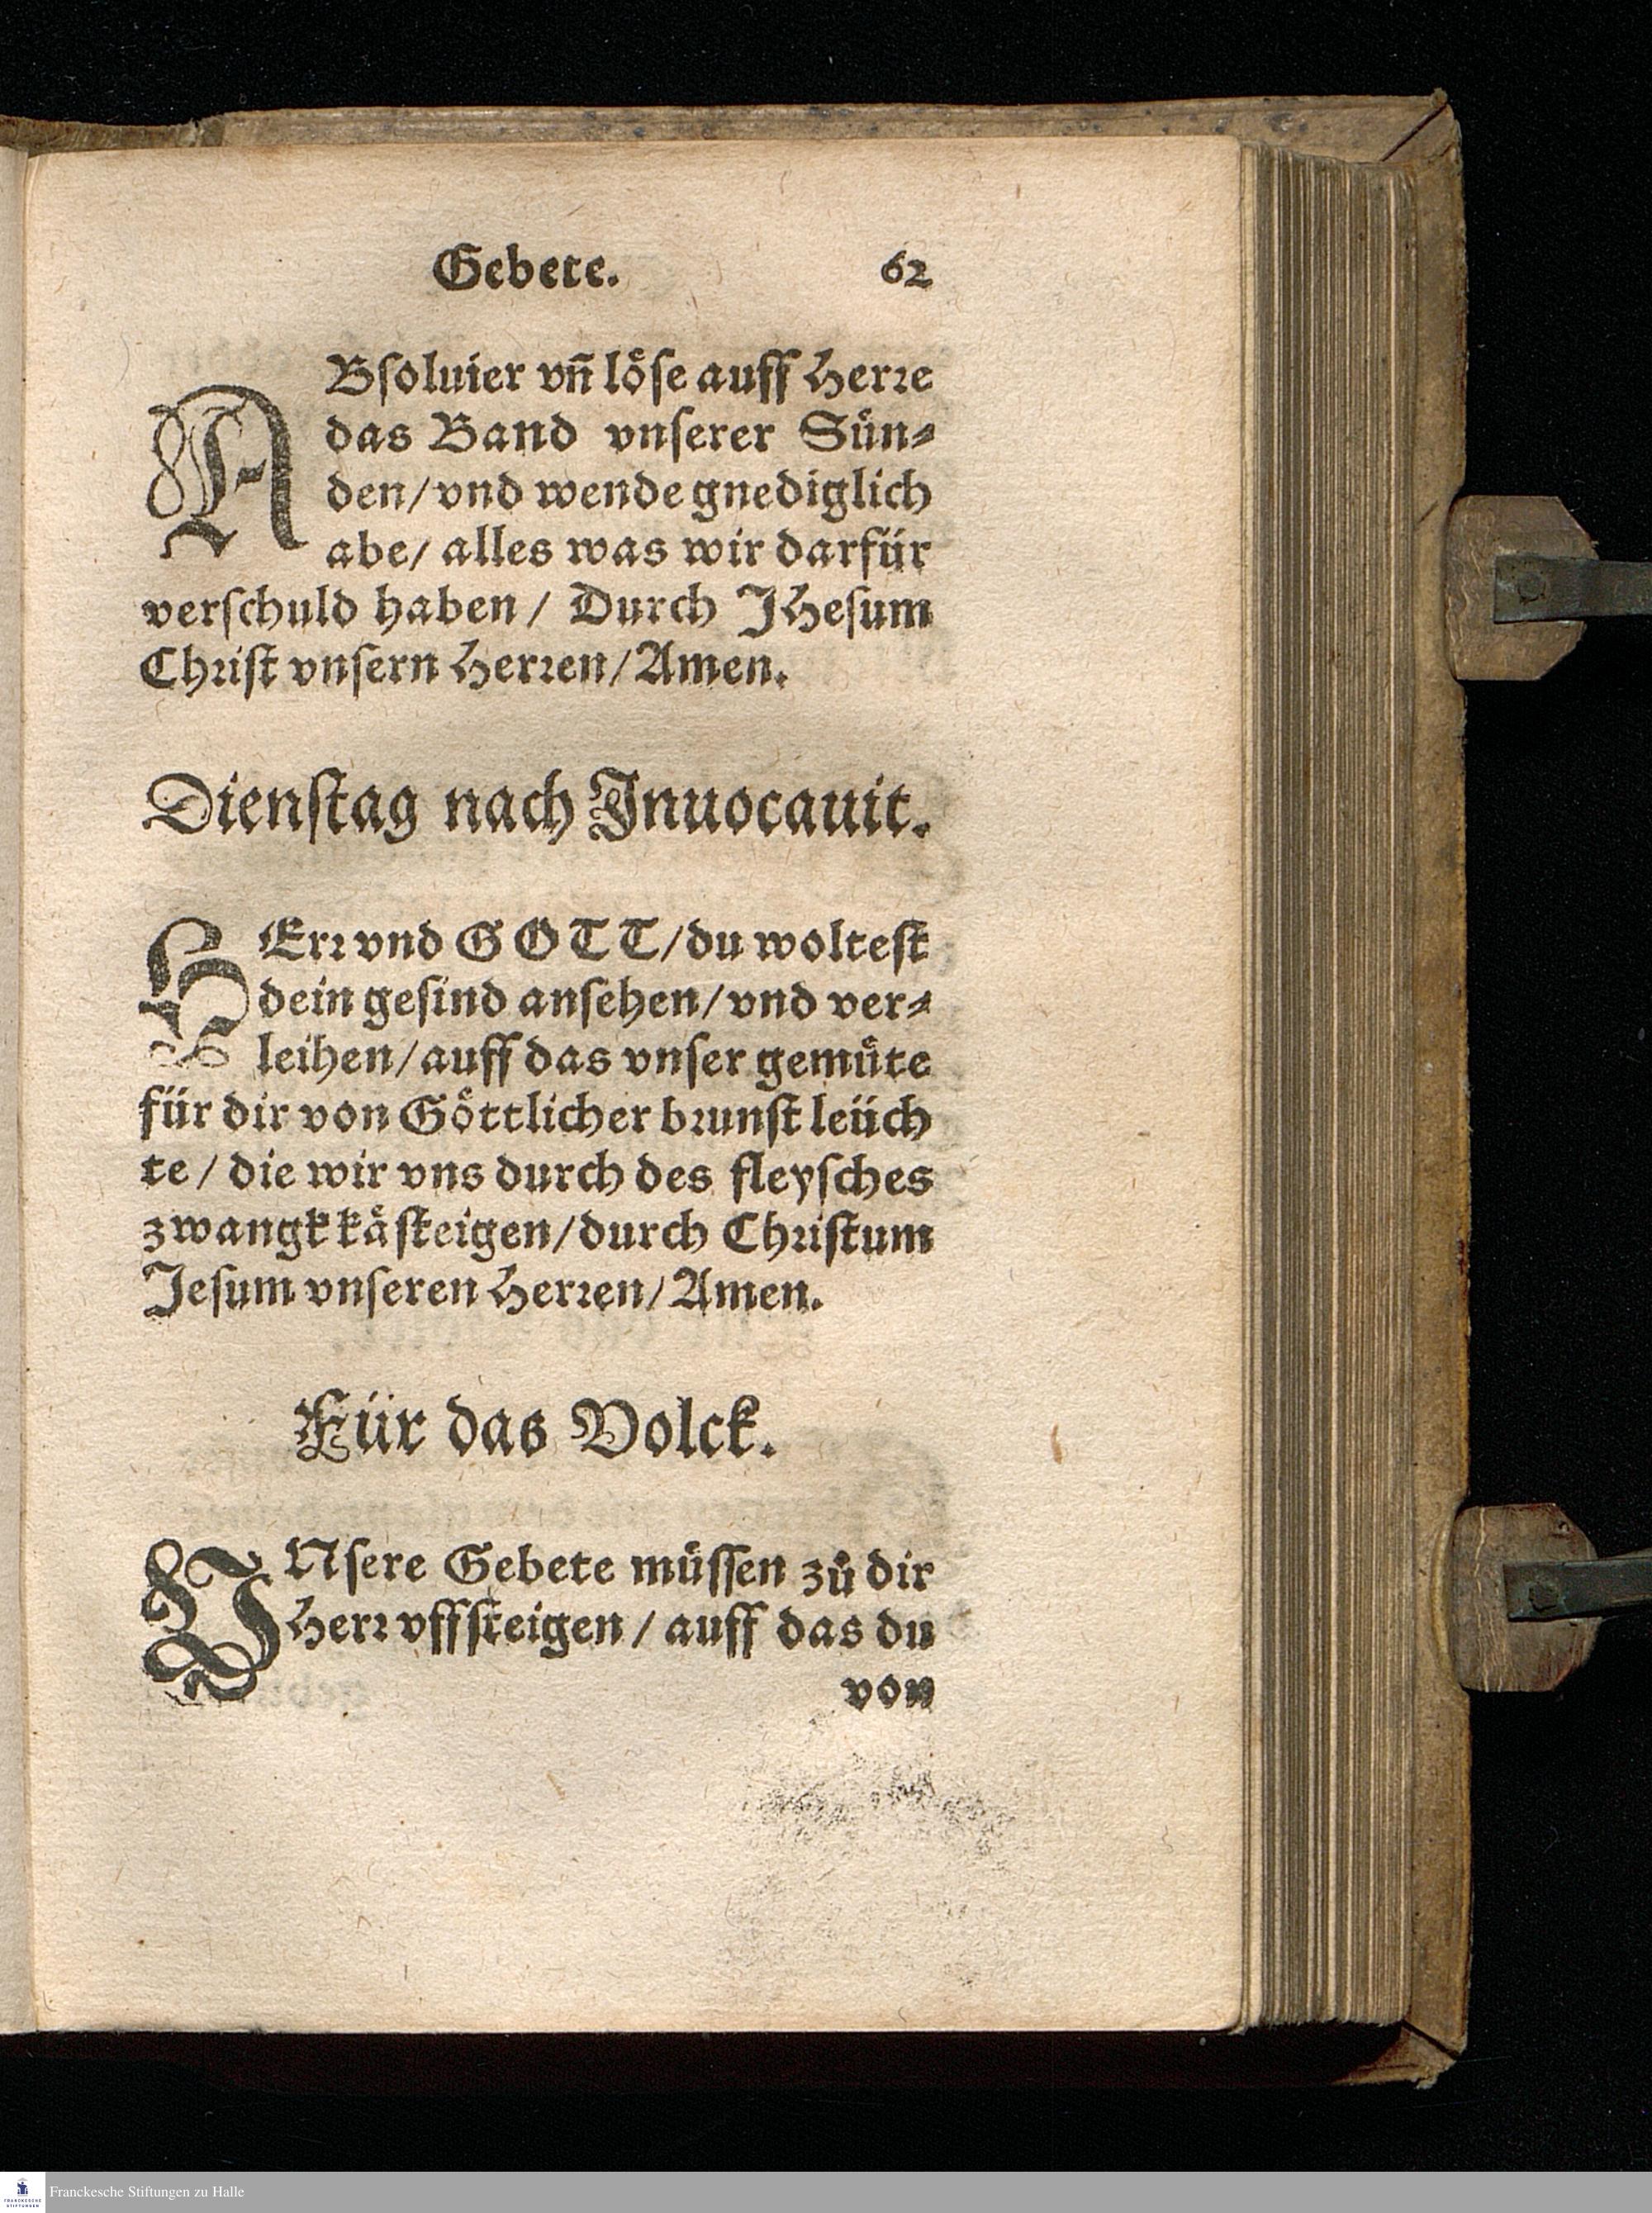 Gebete. 62
ABſoluier vñ löſe auff Herꝛe
das Band vnſerer Sün⸗
den/ vnd wende gnediglich
abe/ alles was wir darfür
verſchuld haben/ Durch JHeſum
Chꝛiſt vnſern Herꝛen/ Amen.
Dienſtag nach Jnuocauit.
HErꝛ vnd GOTT/ du wolteſt
dein geſind anſehen/ vnd ver⸗
leihen/ auff das vnſer gemüte
für dir von Göttlicher bꝛunſt leüch
te/ die wir vns durch des fleyſches
zwangk käſteigen/ durch Chꝛiſtum
Jeſum vnſeren Herꝛen/ Amen.
Für das Volck.
VNſere Gebete müſſen zů dir
Herꝛ vffſteigen/ auff das du
von
Franckesche Stiftungen zu Halle
FRANCKESCHE
STIFTUNGEN